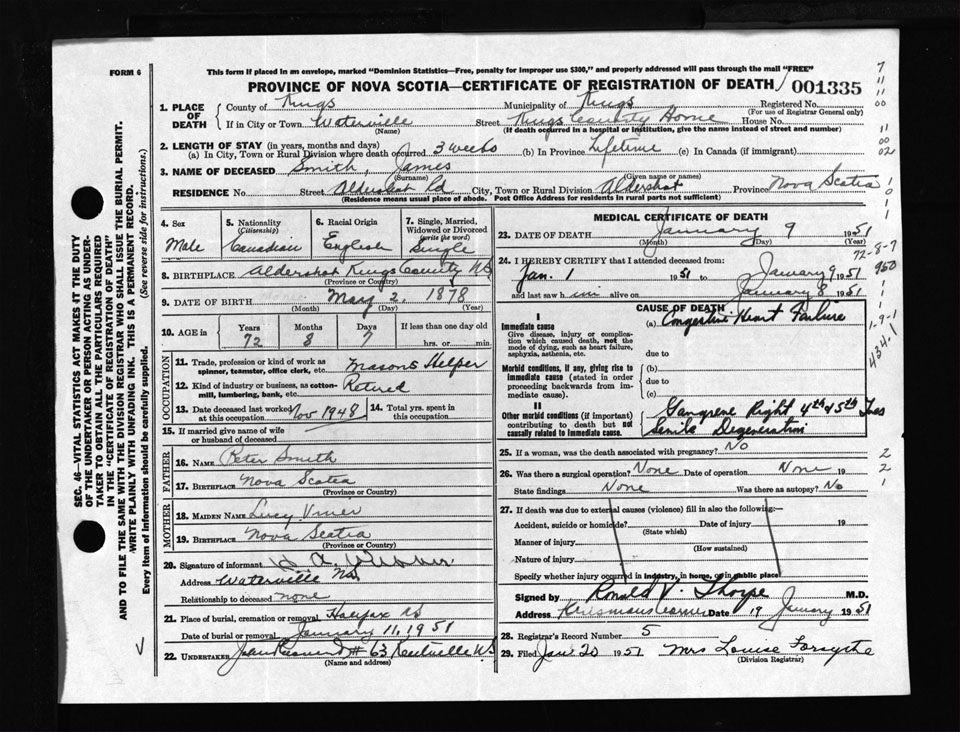 FORM 6
This form if placed in an envelope, marked "Dominion Statistics—Free, penalty for improper use $300," and properly addressed will pass through the mail "FREE"
PROVINCE OF NOVA SCOTIA—CERTIFICATE OF REGISTRATION OF DEATH
001335
1. PLACE OF DEATH
County of Kings Municipality of Kings Registered No.
(For use of Registrar General only)
If in City or Town Waterville Street Kings County Home House No.
(Name) (If death occurred in a hospital or institution, give the name instead of street and number)
2. LENGTH OF STAY (in years, months and days)
(a) In City, Town or Rural Division where death occurred 3 weeks (b) In Province Lifetime (c) In Canada (if immigrant)
3. NAME OF DECEASED Smith, James
(Surname) (Given name or names)
RESIDENCE No. Street Aldershot Rd City, Town or Rural Division Aldershot Province Nova Scotia
(Residence means usual place of abode. Post Office Address for residents in rural parts not sufficient)
4. Sex
Male
5. Nationality
(Citizenship)
Canadian
6. Racial Origin
English
7. Single, Married, Widowed or Divorced
(write the word)
Single
8. BIRTHPLACE Aldershot Kings County NS
(Province or Country)
9. DATE OF BIRTH May 2, 1878
(Month) (Day) (Year)
10. AGE in Years Months Days If less than one day old
72 8 7 hrs. or min.
OCCUPATION
11. Trade, profession or kind of work as spinner, teamster, office clerk, etc. Masons Helper
12. Kind of industry or business, as cotton-mill, lumbering, bank, etc. Retired
13. Date deceased last worked at this occupation Nov 1948
14. Total yrs. spent in this occupation
15. If married give name of wife or husband of deceased
FATHER
16. NAME Peter Smith
17. BIRTHPLACE Nova Scotia
(Province or Country)
MOTHER
18. MAIDEN NAME Lucy
19. BIRTHPLACE Nova Scotia
(Province or Country)
20. Signature of informant
Address Waterville NS
Relationship to deceased none
21. Place of burial, cremation or removal Halifax NS
Date of burial or removal January 11, 1951
22. UNDERTAKER # 63 Kentville NS
(Name and address)
MEDICAL CERTIFICATE OF DEATH
23. DATE OF DEATH January 9 1951
(Month) (Day) (Year)
24. I HEREBY CERTIFY that I attended deceased from:
Jan. 1 1951 to January 9 1951
and last saw him alive on January 8 1951
CAUSE OF DEATH
I
Immediate cause
Give disease, injury or complication which caused death, not the mode of dying, such as heart failure, asphyxia, asthenia, etc.
(a) Congestive Heart Failure
due to
Morbid conditions, if any, giving rise to immediate cause (stated in order proceeding backwards from immediate cause).
(b)
due to
(c)
II
Other morbid conditions (if important) contributing to death but not causally related to immediate cause.
Gangrene Right 4th & 5th Toes
Senile Degeneration
25. If a woman, was the death associated with pregnancy? No
26. Was there a surgical operation? None Date of operation None 19
State findings None Was there an autopsy? No
27. If death was due to external causes (violence) fill in also the following:—
Accident, suicide or homicide? Date of injury 19
(State which)
Manner of injury
(How sustained)
Nature of injury
Specify whether injury occurred in industry, in home, or in public place
Signed by Ronald V. Thorpe M.D.
Address Date 19 January 1951
28. Registrar's Record Number 5
29. Filed Jan 20 1951 Mrs Louise Forsythe
(Division Registrar)
72-8-7
950
1-9-1
434.1
SEC. 46—VITAL STATISTICS ACT MAKES IT THE DUTY
OF THE UNDERTAKER OR PERSON ACTING AS UNDER-
TAKER TO OBTAIN ALL THE PARTICULARS REQUIRED
IN THE "CERTIFICATE OF REGISTRATION OF DEATH"
AND TO FILE THE SAME WITH THE DIVISION REGISTRAR WHO SHALL ISSUE THE BURIAL PERMIT.
WRITE PLAINLY WITH UNFADING INK. THIS IS A PERMANENT RECORD.
Every item of information should be carefully supplied. (See reverse side for instructions.)